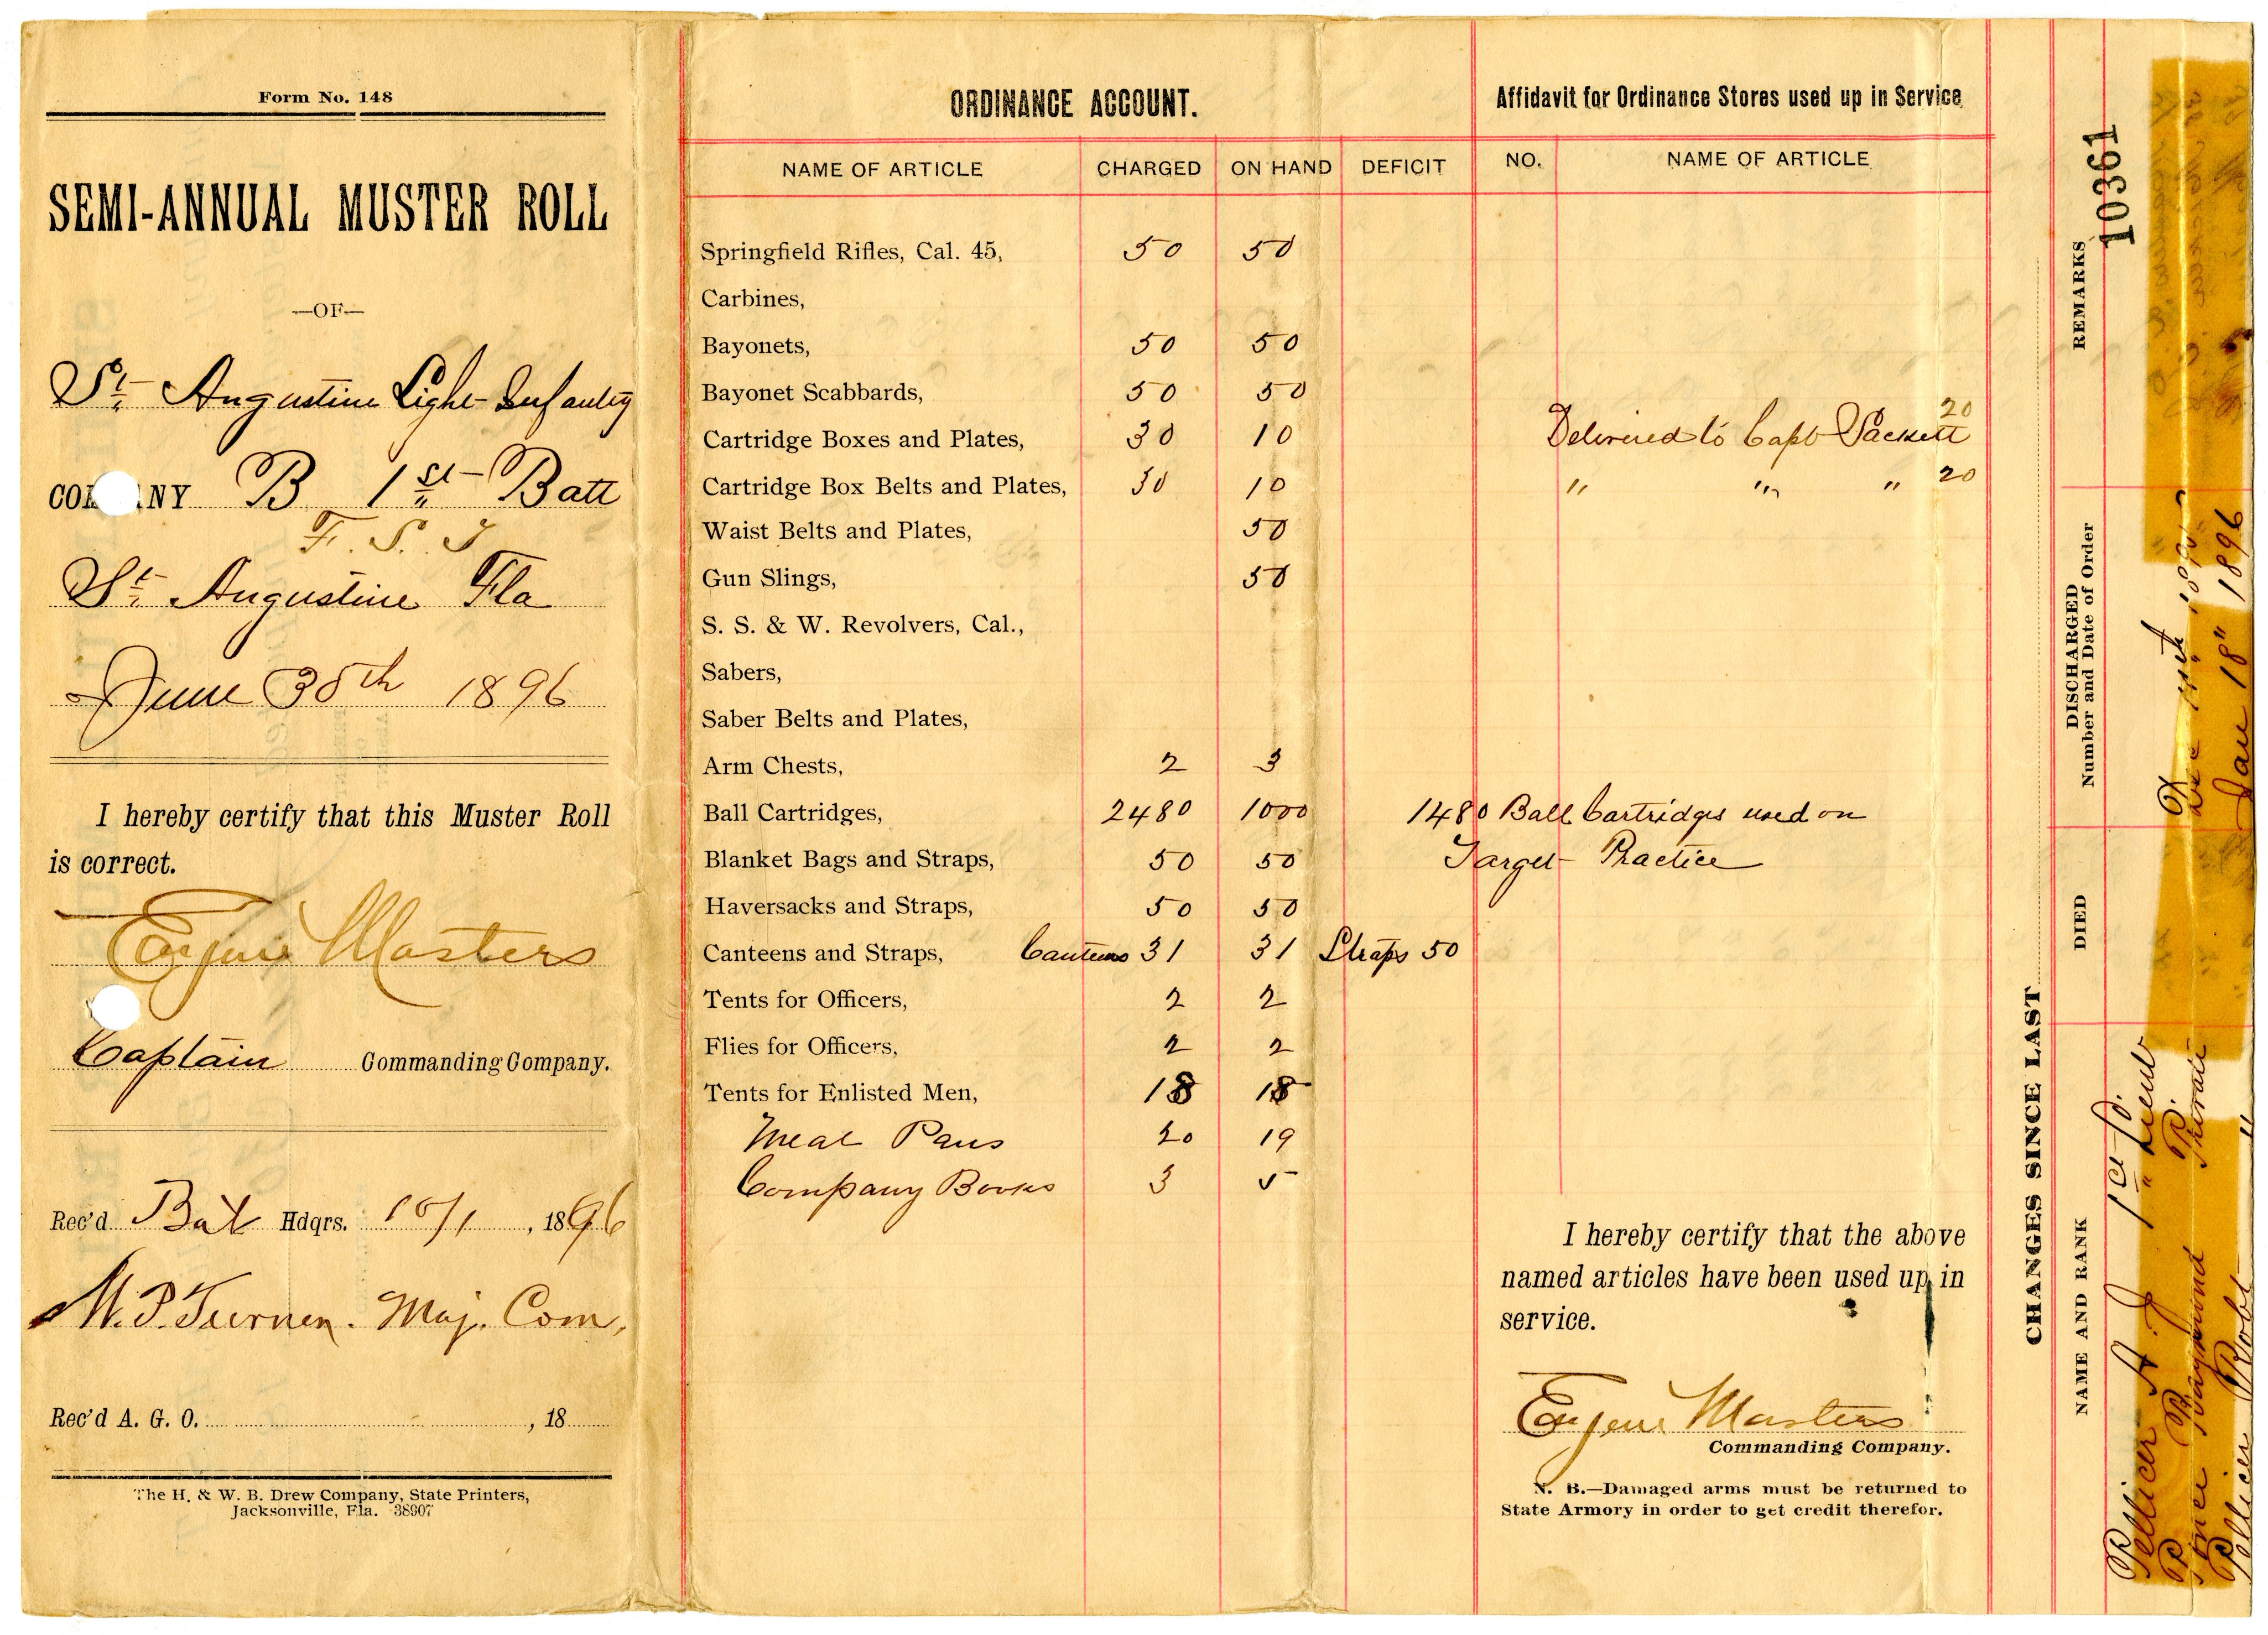 Form No. 148
SEMI-ANNUAL MUSTER ROLL
—OF—
St. Augustine Light Infantry
COMPANY B 1st Batt
F. S. T
St. Augustine Fla
June 30th 1896
I hereby certify that this Muster Roll
is correct.
Eugene Masters
Captain Commanding Company.
Rec'd Bat Hdqrs. 10/1, 1896
W. P. Turner. Maj. Com,
Rec'd A. G. O. , 18
The H. & W. B. Drew Company, State Printers,
Jacksonville, Fla. 38907
ORDINANCE ACCOUNT.
NAME OF ARTICLE CHARGED ON HAND DEFICIT
Springfield Rifles, Cal. 45, 50 50
Carbines,
Bayonets, 50 50
Bayonet Scabbards, 50 50
Cartridge Boxes and Plates, 30 10
Cartridge Box Belts and Plates, 30 10
Waist Belts and Plates, 50
Gun Slings, 50
S. S. & W. Revolvers, Cal.,
Sabers,
Saber Belts and Plates,
Arm Chests, 2 3
Ball Cartridges, 2480 1000
Blanket Bags and Straps, 50 50
Haversacks and Straps, 50 50
Canteens and Straps, Canteens 31 31 Straps 50
Tents for Officers, 2 2
Flies for Officers, 2 2
Tents for Enlisted Men, 18 18
Meat Pans 20 19
Company Books 3 5
Affidavit for Ordinance Stores used up in Service
NO. NAME OF ARTICLE
Delivered to Capt Sackett 20
" " " 20
1480 Ball Cartridges used on
Target Practice
I hereby certify that the above
named articles have been used up in
service.
Eugene Masters
Commanding Company.
N. B.—Damaged arms must be returned to
State Armory in order to get credit therefor.
CHANGES SINCE LAST
NAME AND RANK DIED DISCHARGED Number and Date of Order REMARKS
10361
Pellicer A. J. 1st Lieut
Ponce Raymond Private
Pellicer Robt " Jan 18" 1896